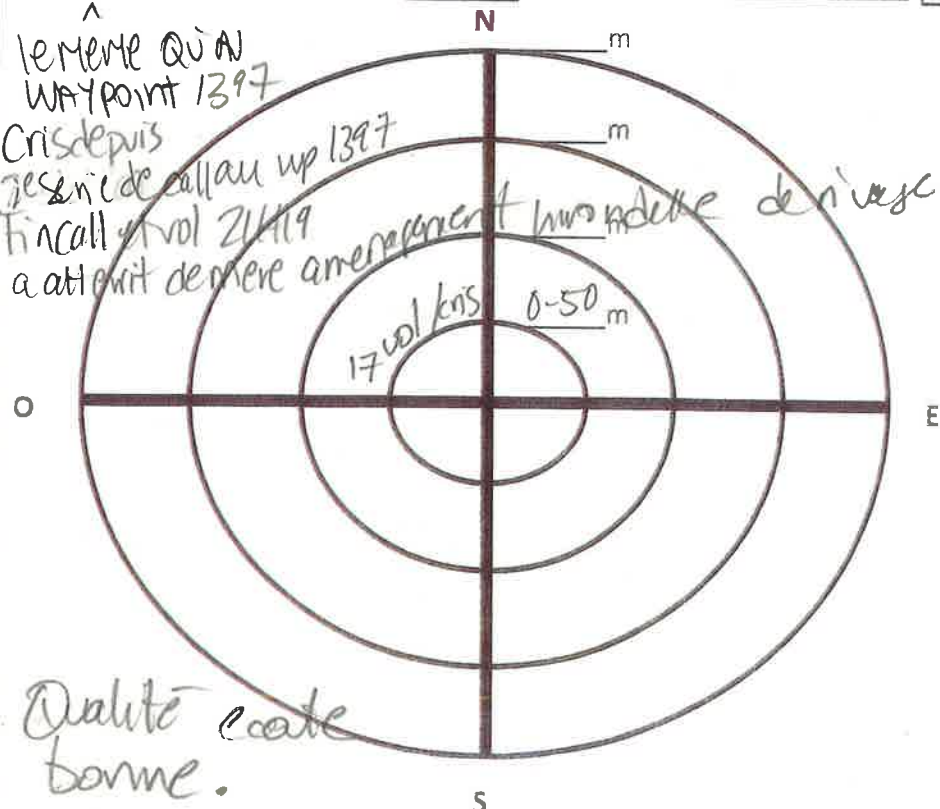 N
le même QU'AU
WAYPOINT 1397
m
Cris depuis
serie de call au wp 1397
m
Fin call et vol 21h19
a atterrit derrière amenagement hirondelle de rivage
m
17 vol/cris
0-50 m
O
E
Qualité écoute
bonne.
S